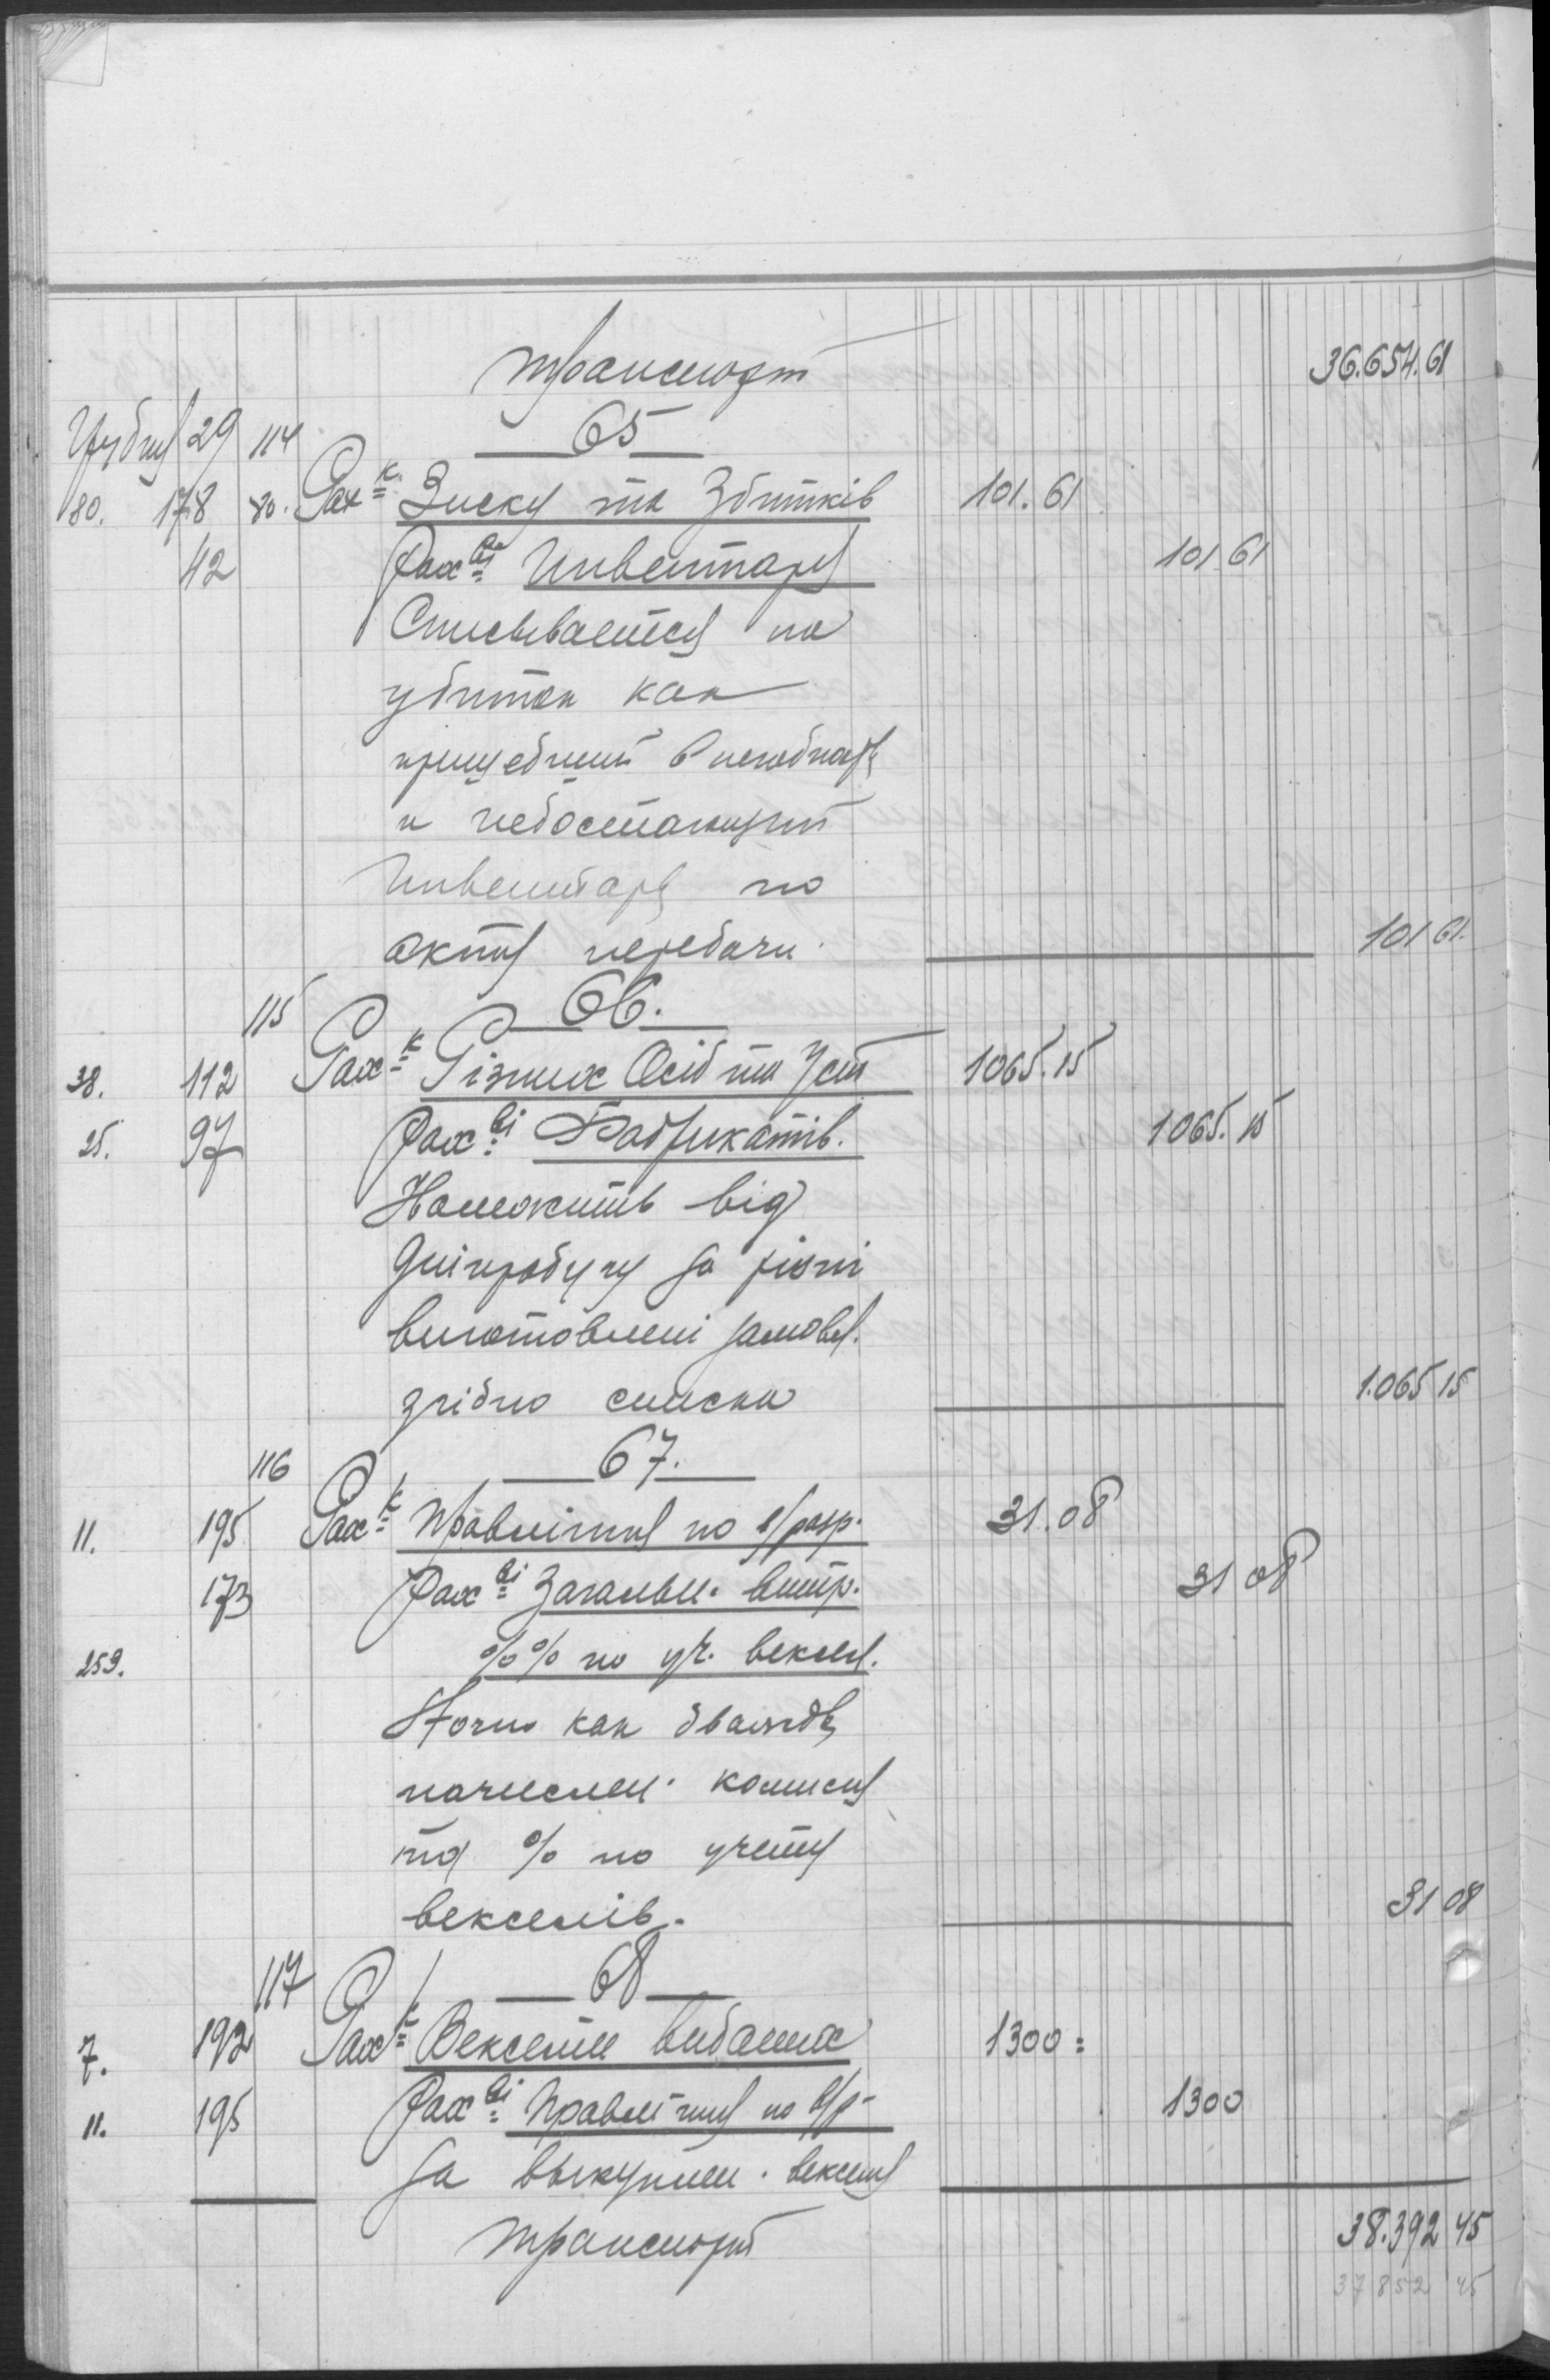 Транспорт 36.654.61
Грудня 29 114 65
80. 178 80. Рах-к Зиску та Збитків 101.61
42 Рах-ві Инвентаря 101 61
Списывается на
убиток как
пришедший в негодность
и недостающий
Инвентарь по
акту передачи. 101 61.
115 66.
38. 112 Рах-к Різних Осіб та Уст 1065.15
25. 97 Рах-ві Фабрикатів. 1065.15
Належить від
за різні
виготовлені замовл.
згідно списка 1.065 15
116 67.
11. 195 Рах-к Правління по с/разр. 31.08
173 Рах-ві Загальн. витр. 31 08
259. %% по уч. векселя.
Сторно как дважды
начислен. комисия
та % по учету
векселів. 31 08
117 68
7. 192 Рах-к Векселів виданих 1300=
11. 195 Рах-ві Правління по с/р- 1300
За выкуплен. векселя
Транспорт 38.392 45
37 852 45